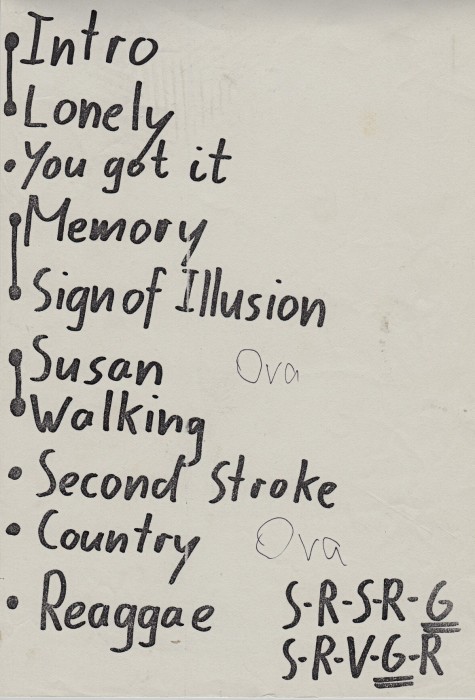 Intro
Lonely
You got it
Memory
Sign of Illusion
Susan Ova
Walking
Second Stroke
Country Ova
Reaggae
S-R-S-R-G
S-R-V-G-R